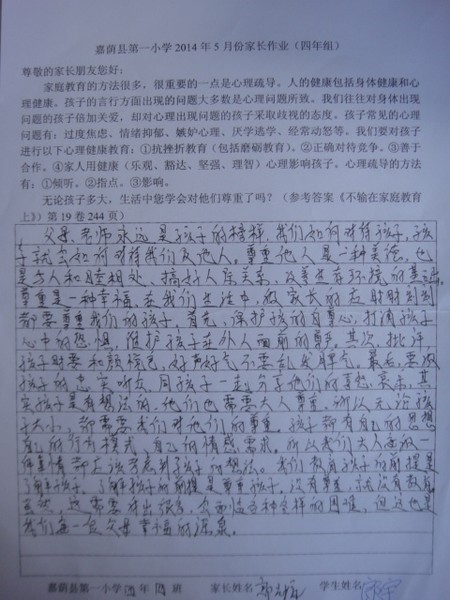 嘉荫县第一小学2014年5月份家长作业（四年组）
尊敬的家长朋友您好：
家庭教育的方法很多，很重要的一点是心理疏导。人的健康包括身体健康和心
理健康。孩子的言行方面出现的问题大多数是心理问题所致。我们往往对身体出现
问题的孩子倍加关爱，却对心理出现问题的孩子采取歧视的态度。孩子常见的心理
问题有：过度焦虑、情绪抑郁、嫉妒心理、厌学逃学、经常动怒等。我们要对孩子
进行以下心理健康教育：①抗挫折教育（包括磨砺教育）。②正确对待竞争。③善于
合作。④家人用健康（乐观、豁达、坚强、理智）心理影响孩子。心理疏导的方法
有：①倾听。②指点。③影响。
无论孩子多大，生活中您学会对他们尊重了吗？（参考答案《不输在家庭教育
上》）第19卷244页）
父母、老师永远是孩子的榜样，我们如何对待孩子，孩
子就会如何对待我们及他人。尊重他人是一种美德，也
是与人和睦相处、搞好人际关系、改善生存环境的基础。
尊重是一种幸福，在我们生活中，做家长的应时时刻刻
都要尊重我们的孩子。首先，保护孩的自尊心，打消孩子
心中的恐惧，维护孩子在外人面前的尊严。其次，批评
孩子时要和颜悦色，好声好气不要乱发脾气。最后，要做
孩子的忠实听众，同孩子一起分享他们的喜怒哀乐，其
实孩子是有想法的，他们也需要大人尊重，所以无论孩
子大小，都需要我们对他们的尊重。孩子都有自己的思想
自己的行为模式，自己的情感需求，所以我们大人在做一
件事情都应该考虑到孩子的想法。我们教育孩子的前提是
了解孩子，了解孩子的前提是尊重孩子，没有尊重，就没有教育
，这需要付出很多，会面临各种各样的困难，但这也是
我们每一位父母幸福的源泉。
嘉荫县第一小学四年四班 家长姓名 学生姓名